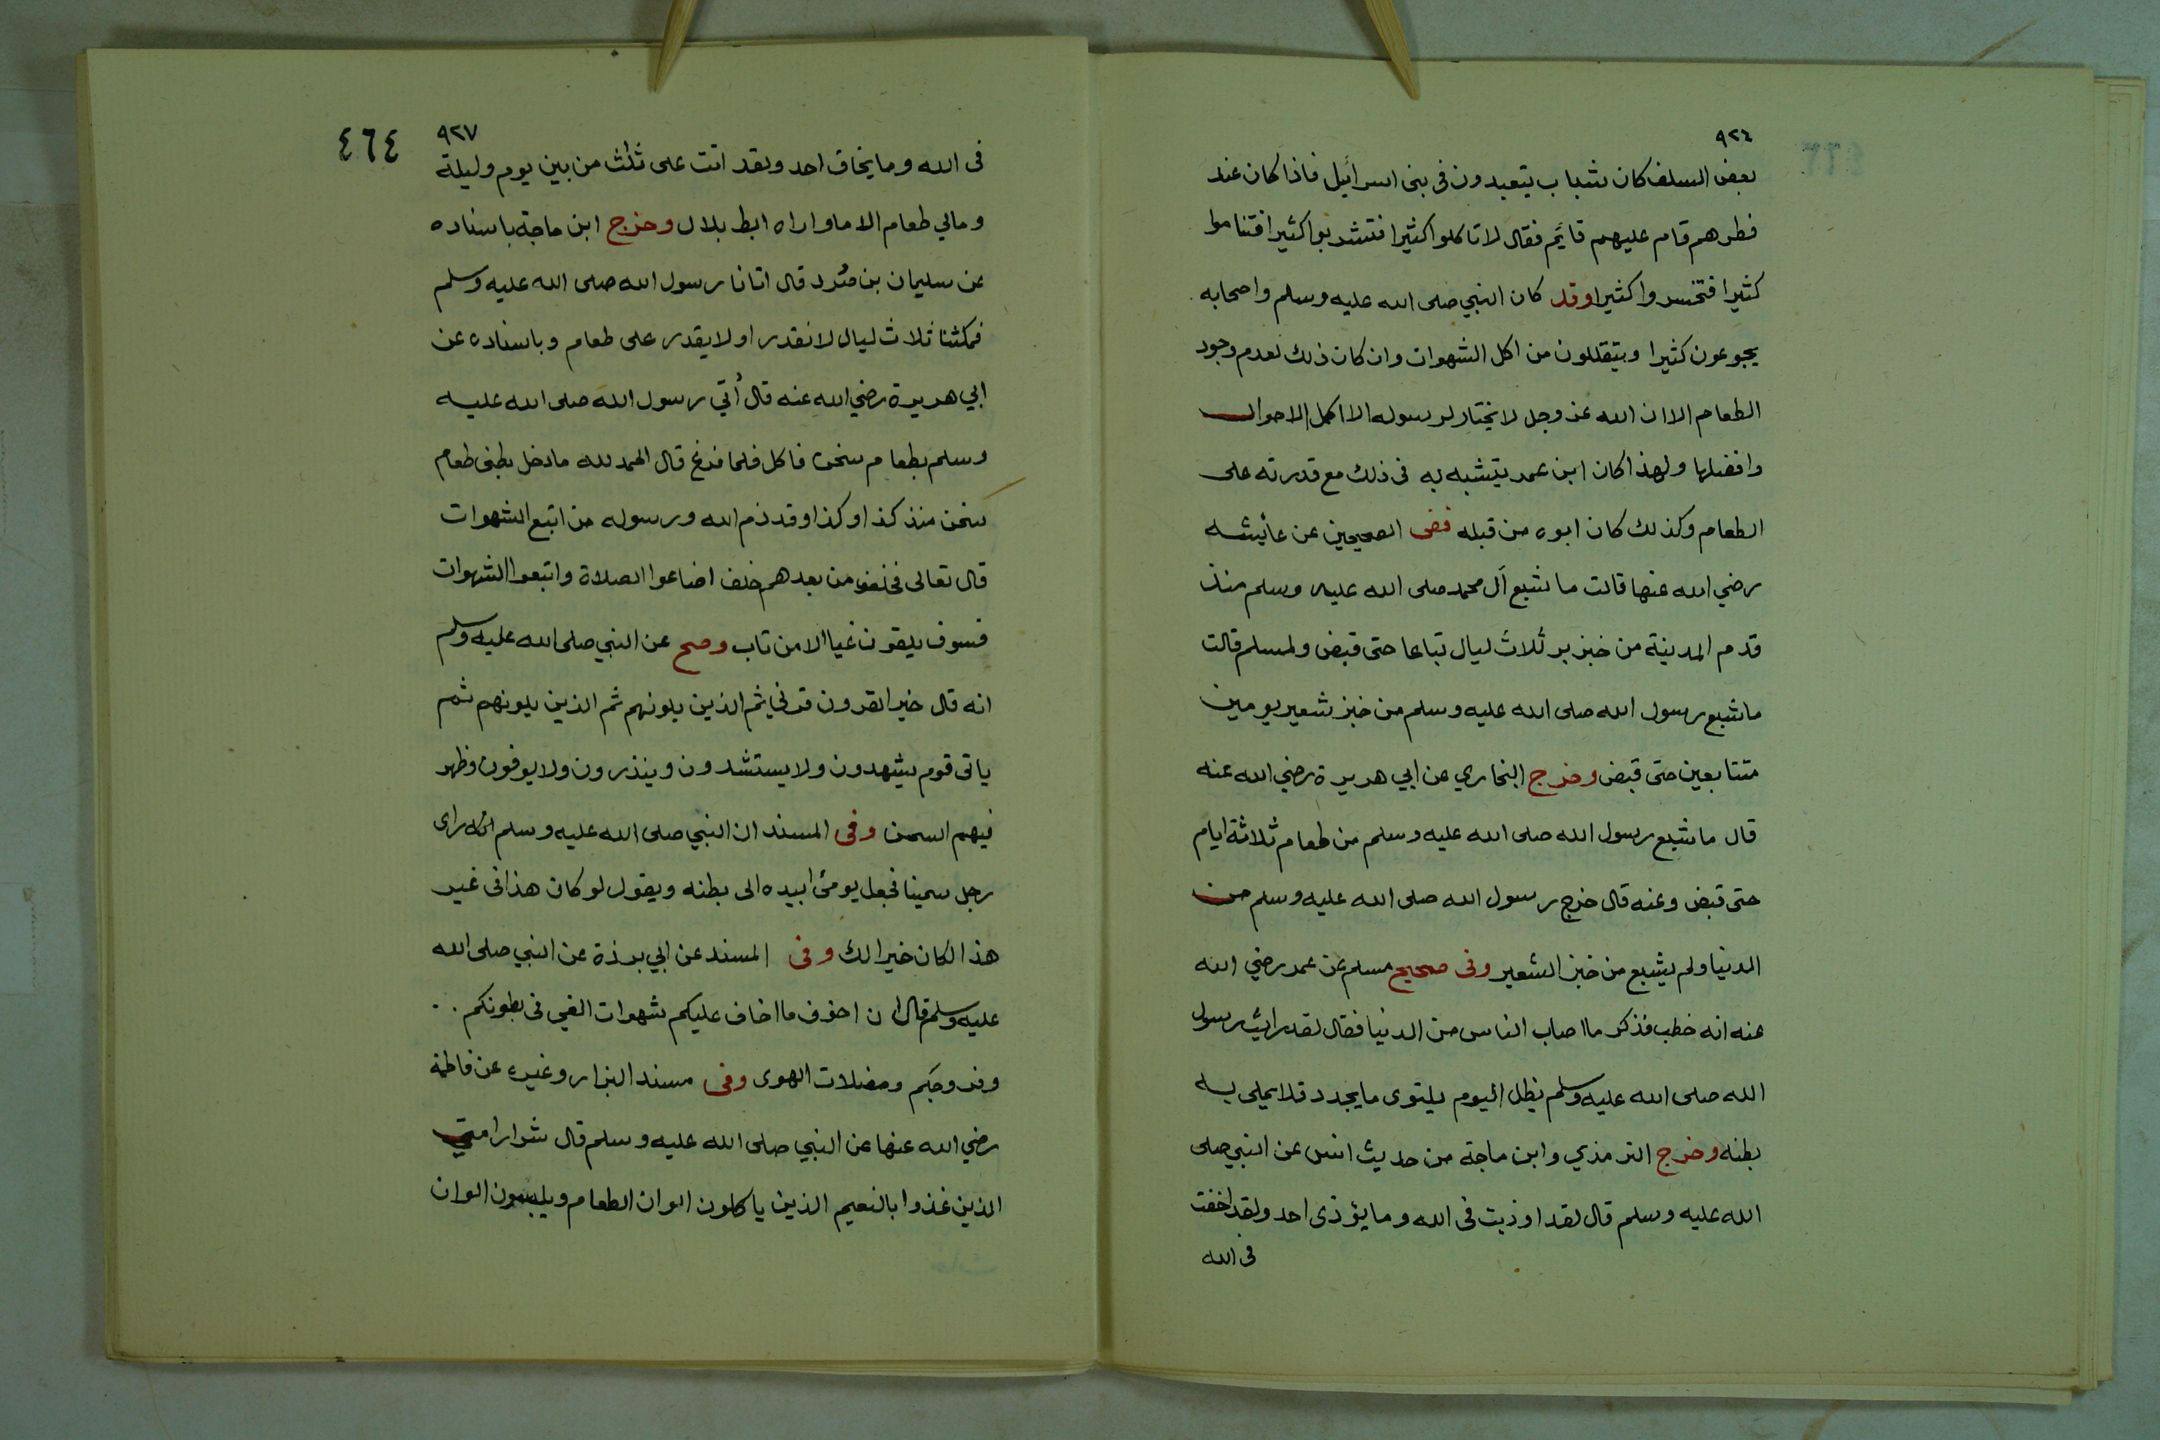 ٩٢٦
بعض السلف كان شباب يتعبدون في بني اسرائيل فاذا كان عند
فطرهم قام عليهم قائم فقال لا تاكلوا كثيرا فتشربوا كثيرا فتناموا
كثيرا فتخسروا كثيرا وقد كان النبي صلى الله عليه وسلم واصحابه
يجوعون كثيرا ويتقللون من اكل الشهوات وان كان ذلك لعدم وجود
الطعام الا ان الله عز وجل لا يختار لرسوله الا اكمل الاحوال
وافضلها ولهذا كان ابن عمر يتشبه به في ذلك مع قدرته على
الطعام وكذلك كان ابوه من قبله ففى الصحيحين عن عائيشه
رضي الله عنها قالت ما شبع آل محمد صلى الله عليه وسلم منذ
قدم المدينة من خبز بر ثلاث ليال تباعا حتى قبض ولمسلم قالت
ما شبع رسول الله صلى الله عليه وسلم من خبز شعير يومين
متتابعين حتى قبض وخرج البخاري عن ابي هريرة رضي الله عنه
قال ما شبع رسول الله صلى الله عليه وسلم من طعام ثلاثة ايام
حتى قبض وعنه قال خرج رسول الله صلى الله عليه وسلم من
الدنيا ولم يشبع من خبز الشعير وفى صحيح مسلم عن عمر رضي الله
عنه انه خطب فذكر ما اصاب الناس من الدنيا فقال لقد رايت رسول
الله صلى الله عليه وسلم يظل اليوم يلتوى ما يجد دقلا يملى به
بطنه وخرج الترمذي وابن ماجة من حديث انس عن النبي صلى
الله عليه وسلم قال لقد اوذيت فى الله وما يؤذى احد ولقد اخفت
فى الله
٩٢٧
٤٦٤
فى الله وما يخاف احد ولقد اتت على ثلث من بين يوم وليلة
ومالي طعام الا ما واراه ابط بلال وخرج ابن ماجة باسناده
عن سليمان بن صُرد قال اتانا رسول الله صلى الله عليه وسلم
فمكثنا ثلاث ليال لا نقدر او لا يقدر على طعام وباسناده عن
ابي هريرة رضي الله عنه قال أتي رسول الله صلى الله عليه
وسلم بطعام سخن فاكل فلما فرغ قال الحمد لله ما دخل بطنى طعام
سخن منذ كذا وكذا وقد ذم الله ورسوله من اتبع الشهوات
قال تعالى فخلف من بعدهم خلف اضاعوا الصلاة واتبعوا الشهوات
فسوف يلقون غيا الا من تاب وصح عن النبي صلى الله عليه وسلم
انه قال خير القرون قرني ثم الذين يلونهم ثم الذين يلونهم ثم
ياتى قوم يشهدون ولا يستشدون وينذرون ولا يوفون وظهر
فيهم السمن وفى المسند ان النبي صلى الله عليه وسلم انه راى
رجل سمينا فجعل يومئ ابيده الى بطنه ويقول لو كان هذا فى غير
هذا لكان خيرا لك وفى المسند عن ابي برزة عن النبي صلى الله
عليه وسلم قال ان اخوف ما اخاف عليكم شهوات الغي فى بطونكم
وفروجكم ومضلات الهوى وفى مسند البزار وغيره عن فاطمة
رضي الله عنها عن النبي صلى الله عليه وسلم قال شرار امتي
الذين غذوا بالنعيم الذين ياكلون الوان الطعام ويلبسون الوان